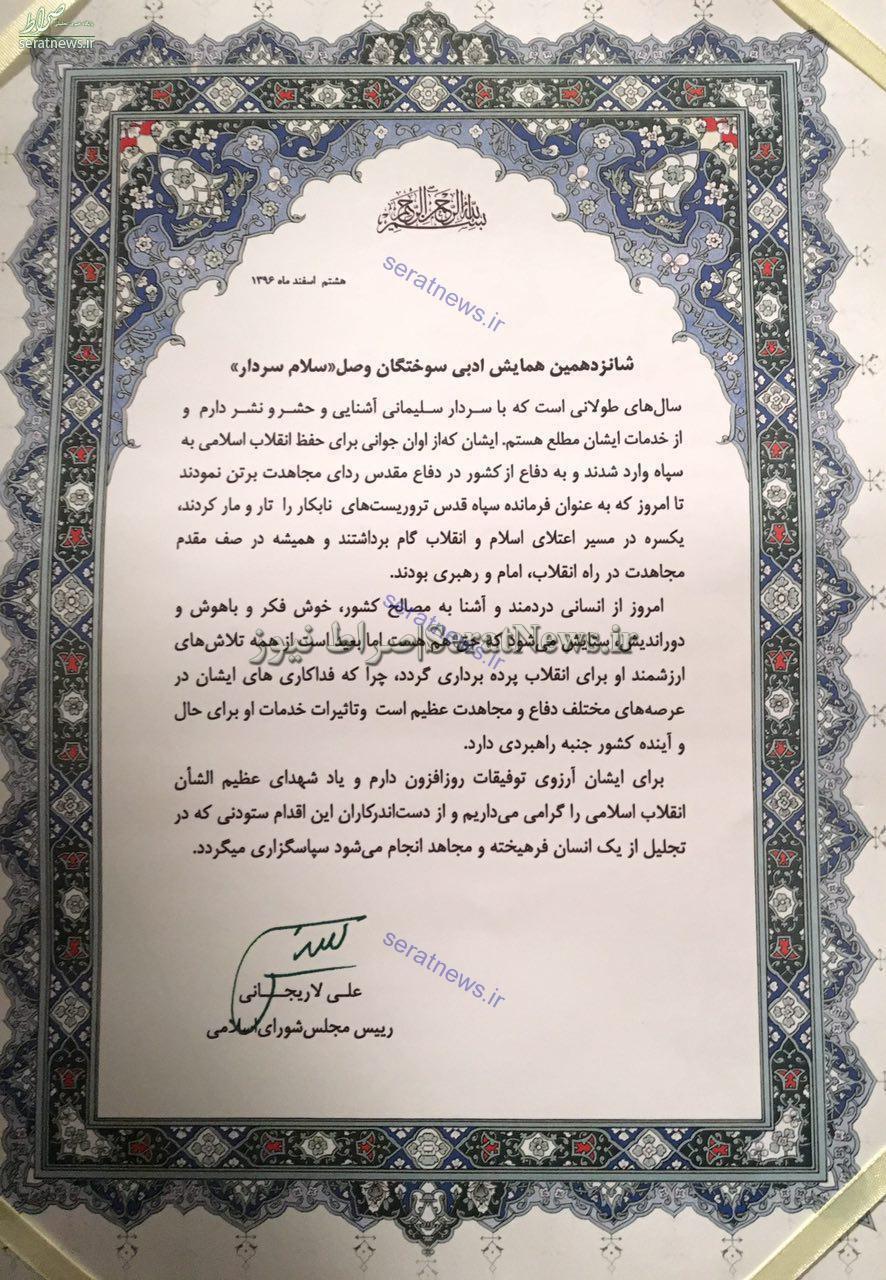 صراط
seratnews.ir
بسم الله الرحمن الرحیم
seratnews.ir
هشتم اسفند ماه ۱۳۹۶
شانزدهمین همایش ادبی سوختگان وصل«سلام سردار»
سال‌های طولانی است که با سردار سلیمانی آشنایی و حشر و نشر دارم و
از خدمات ایشان مطلع هستم. ایشان که‌از اوان جوانی برای حفظ انقلاب اسلامی به
سپاه وارد شدند و به دفاع از کشور در دفاع مقدس ردای مجاهدت برتن نمودند
تا امروز که به عنوان فرمانده سپاه قدس تروریست‌های نابکار را تار و مار کردند،
یکسره در مسیر اعتلای اسلام و انقلاب گام برداشتند و همیشه در صف مقدم
مجاهدت در راه انقلاب، امام و رهبری بودند.
seratnews.ir
امروز از انسانی دردمند و آشنا به مصالح کشور، خوش فکر و باهوش و
دوراندیش، ستایش می‌شود که حق هم هست اما بعید است از همه تلاش‌های
SeratNews.ir|صراط نیوز
ارزشمند او برای انقلاب پرده برداری گردد، چرا که فداکاری های ایشان در
عرصه‌های مختلف دفاع و مجاهدت عظیم است وتاثیرات خدمات او برای حال
و آینده کشور جنبه راهبردی دارد.
برای ایشان آرزوی توفیقات روزافزون دارم و یاد شهدای عظیم الشأن
انقلاب اسلامی را گرامی می‌داریم و از دست‌اندرکاران این اقدام ستودنی که در
تجلیل از یک انسان فرهیخته و مجاهد انجام می‌شود سپاسگزاری میگردد.
seratnews.ir
علی لاریجانی
رییس مجلس‌شورای‌اسلامی